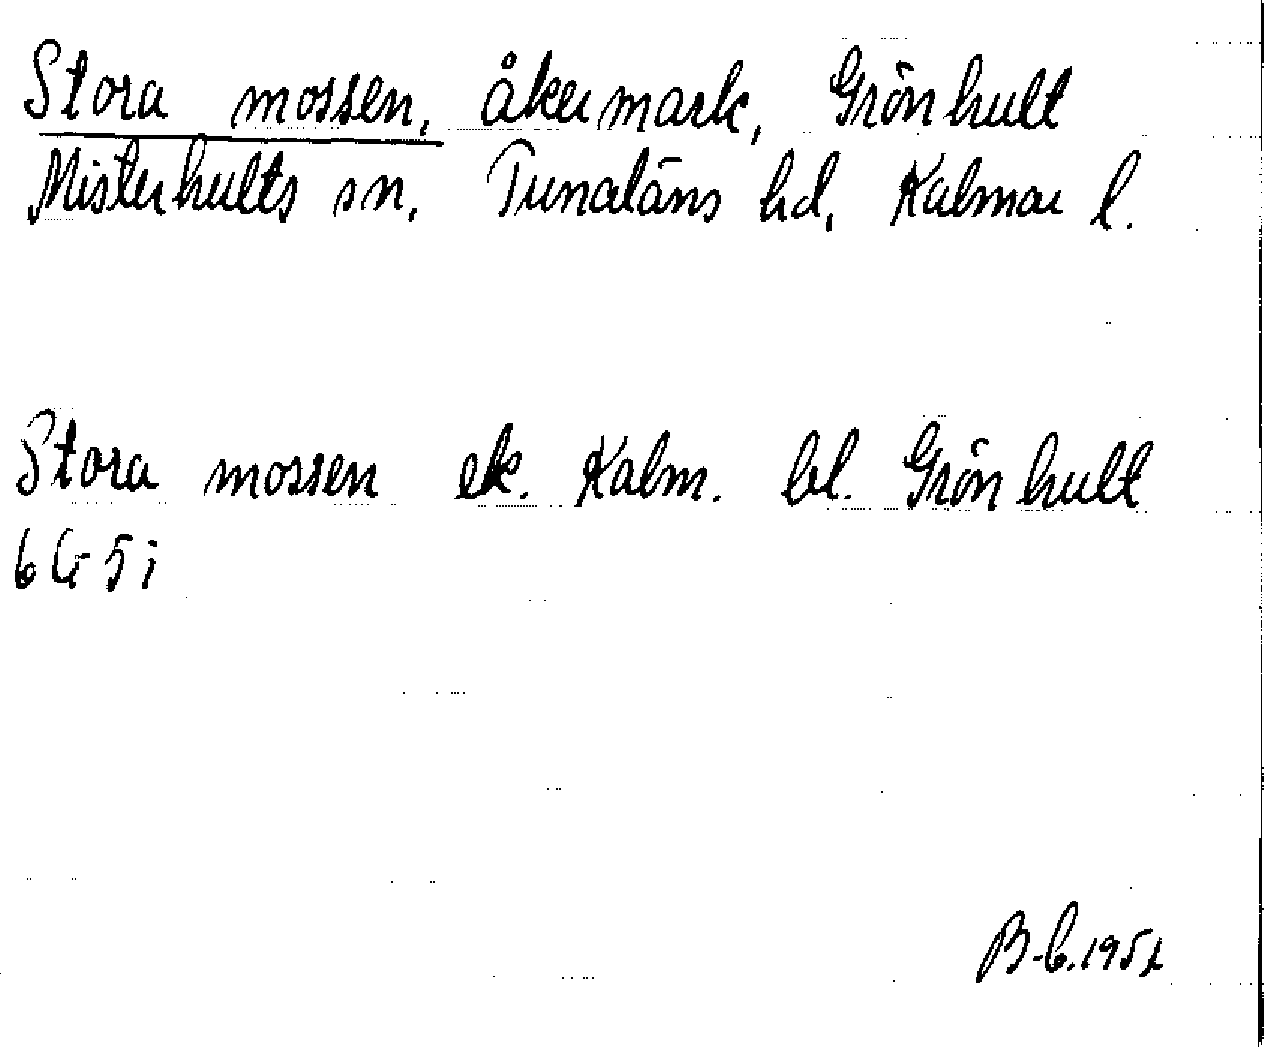 Stora mossen, åkermark, Grönhult
Misterhults sn. Tunaläns hd. Kalmar l.
Stora mossen ek. Kalm. bl. Grönhult
6G 5i
B-b.